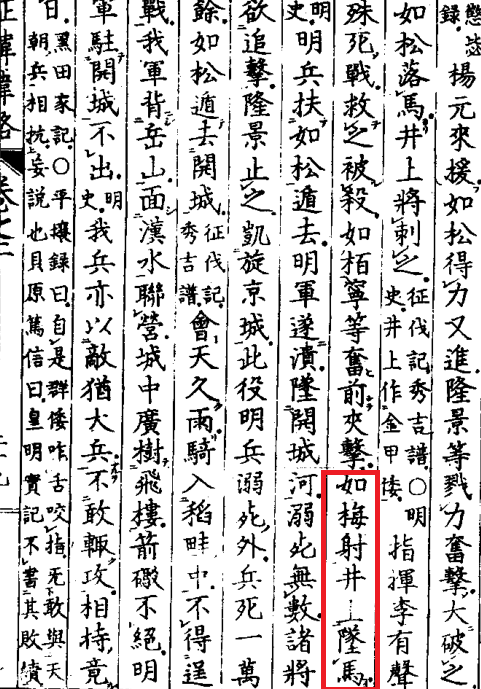 懲毖錄。楊元來援。如松得力又進。隆景等戮力奮擊。大破之
如松落馬。井上將刺之。征伐記。秀吉譜。〇明史。井上作金甲倭。指揮李有聲
殊死戰救之。被殺。如栢寧等奮前夾擊。如梅射井上墜馬。
明史。明兵扶如松遁去。明軍遂潰。墜開城河。溺死無數。諸將
欲追擊。隆景止之。凱旋京城。此役明兵溺死外。兵死一萬
餘。如松遁去開城。征伐記。秀吉譜。會天久雨。騎入稻畦中。不得逞
戰。我軍背岳山。面漢水。聯營城中。廣樹飛樓。箭礮不絕。明
軍駐開城不出。明史。我兵亦以敵猶大兵。不敢輙攻。相持竟
日。黑田家記。〇平壤錄曰。自是群倭咋舌咬指。死敢與天朝兵相抗。妄說也。貝原篤信曰。皇明實記不書其敗憤